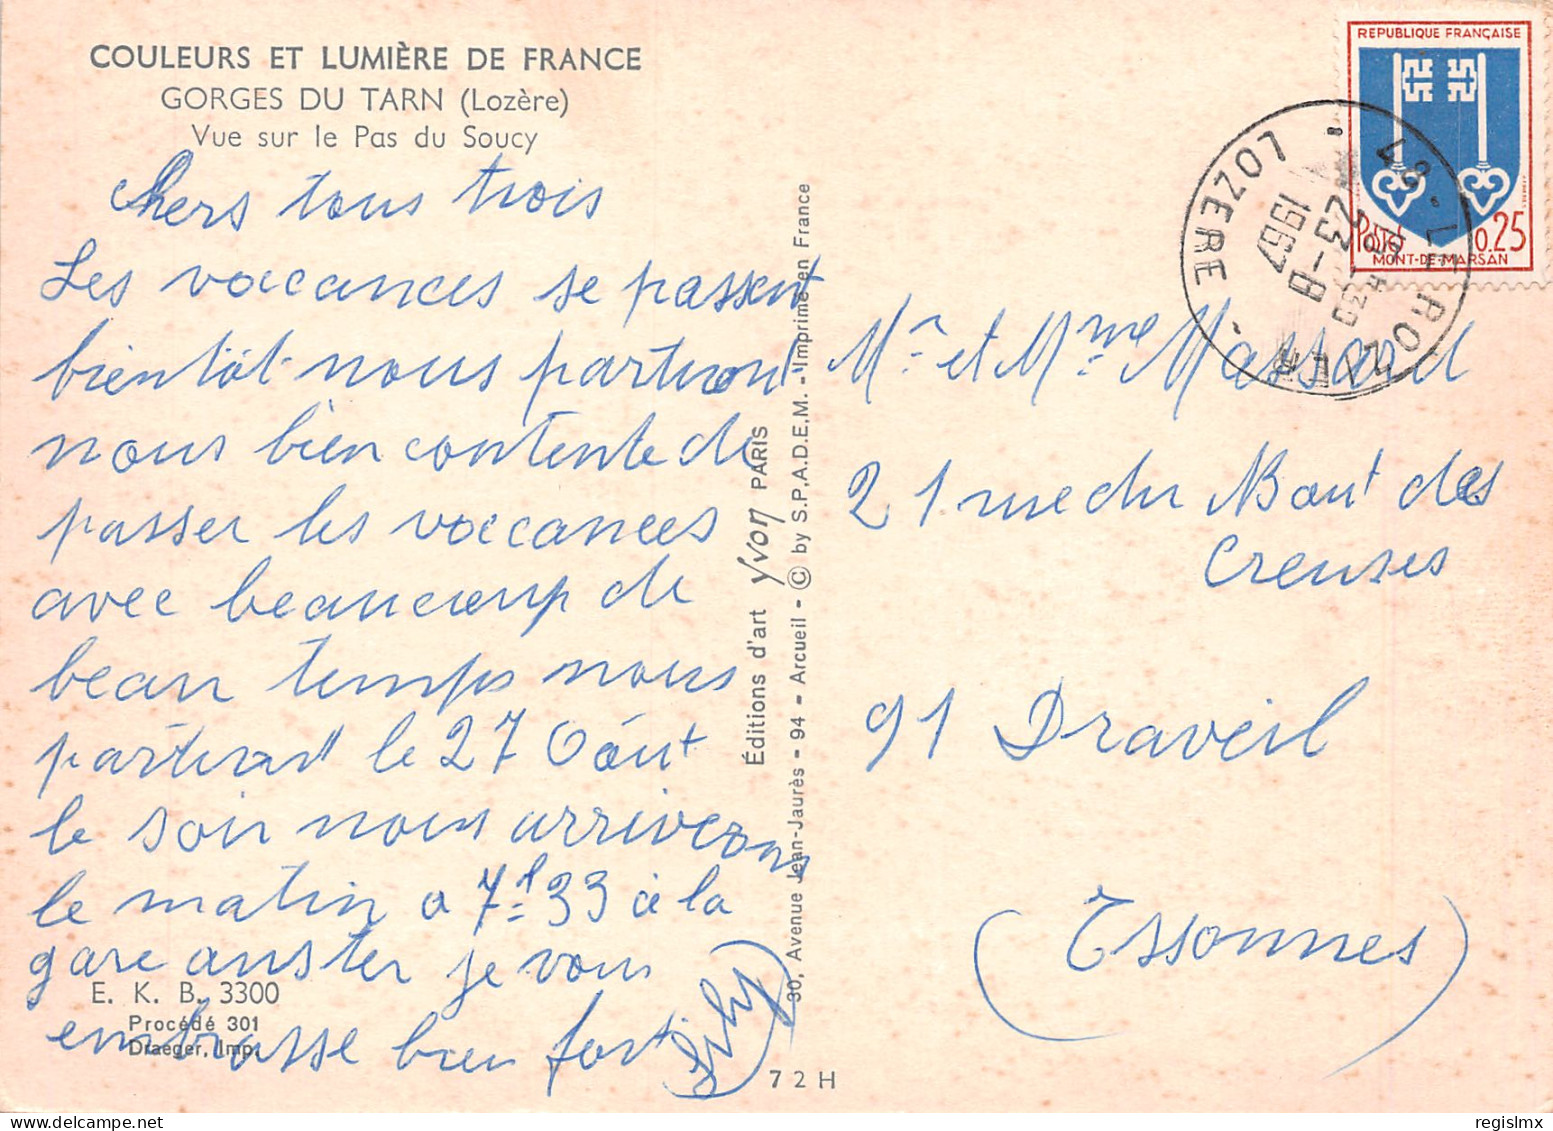 COULEURS ET LUMIÈRE DE FRANCE
GORGES DU TARN (Lozère)
Vue sur le Pas du Soucy
chers tous trois
Les vaccances se passent
bientôt nous partiront
nous bien contente de
passer les vaccances
avec beaucoup de
beau temps nous
partiront le 27 Aôut
le soir nous arriverons
le matin a 7h 33 à la
gare auster je vous
embrasse bien fort
Lily
E. K. B. 3300
Procédé 301
Draeger, Imp.
72H
Éditions d'art yvon PARIS
30, Avenue Jean-Jaurès - 94 - Arcueil - © by S.P.A.D.E.M. - Imprimé en France
REPUBLIQUE FRANÇAISE
Postes 0.25
MONT-DE-MARSAN
48 - LE ROZIER - LOZERE
23-8
1967
Mr et Mme Massard
21 rue du Haut des
Creuses
91 Draveil
(Essonnes)
regislmx